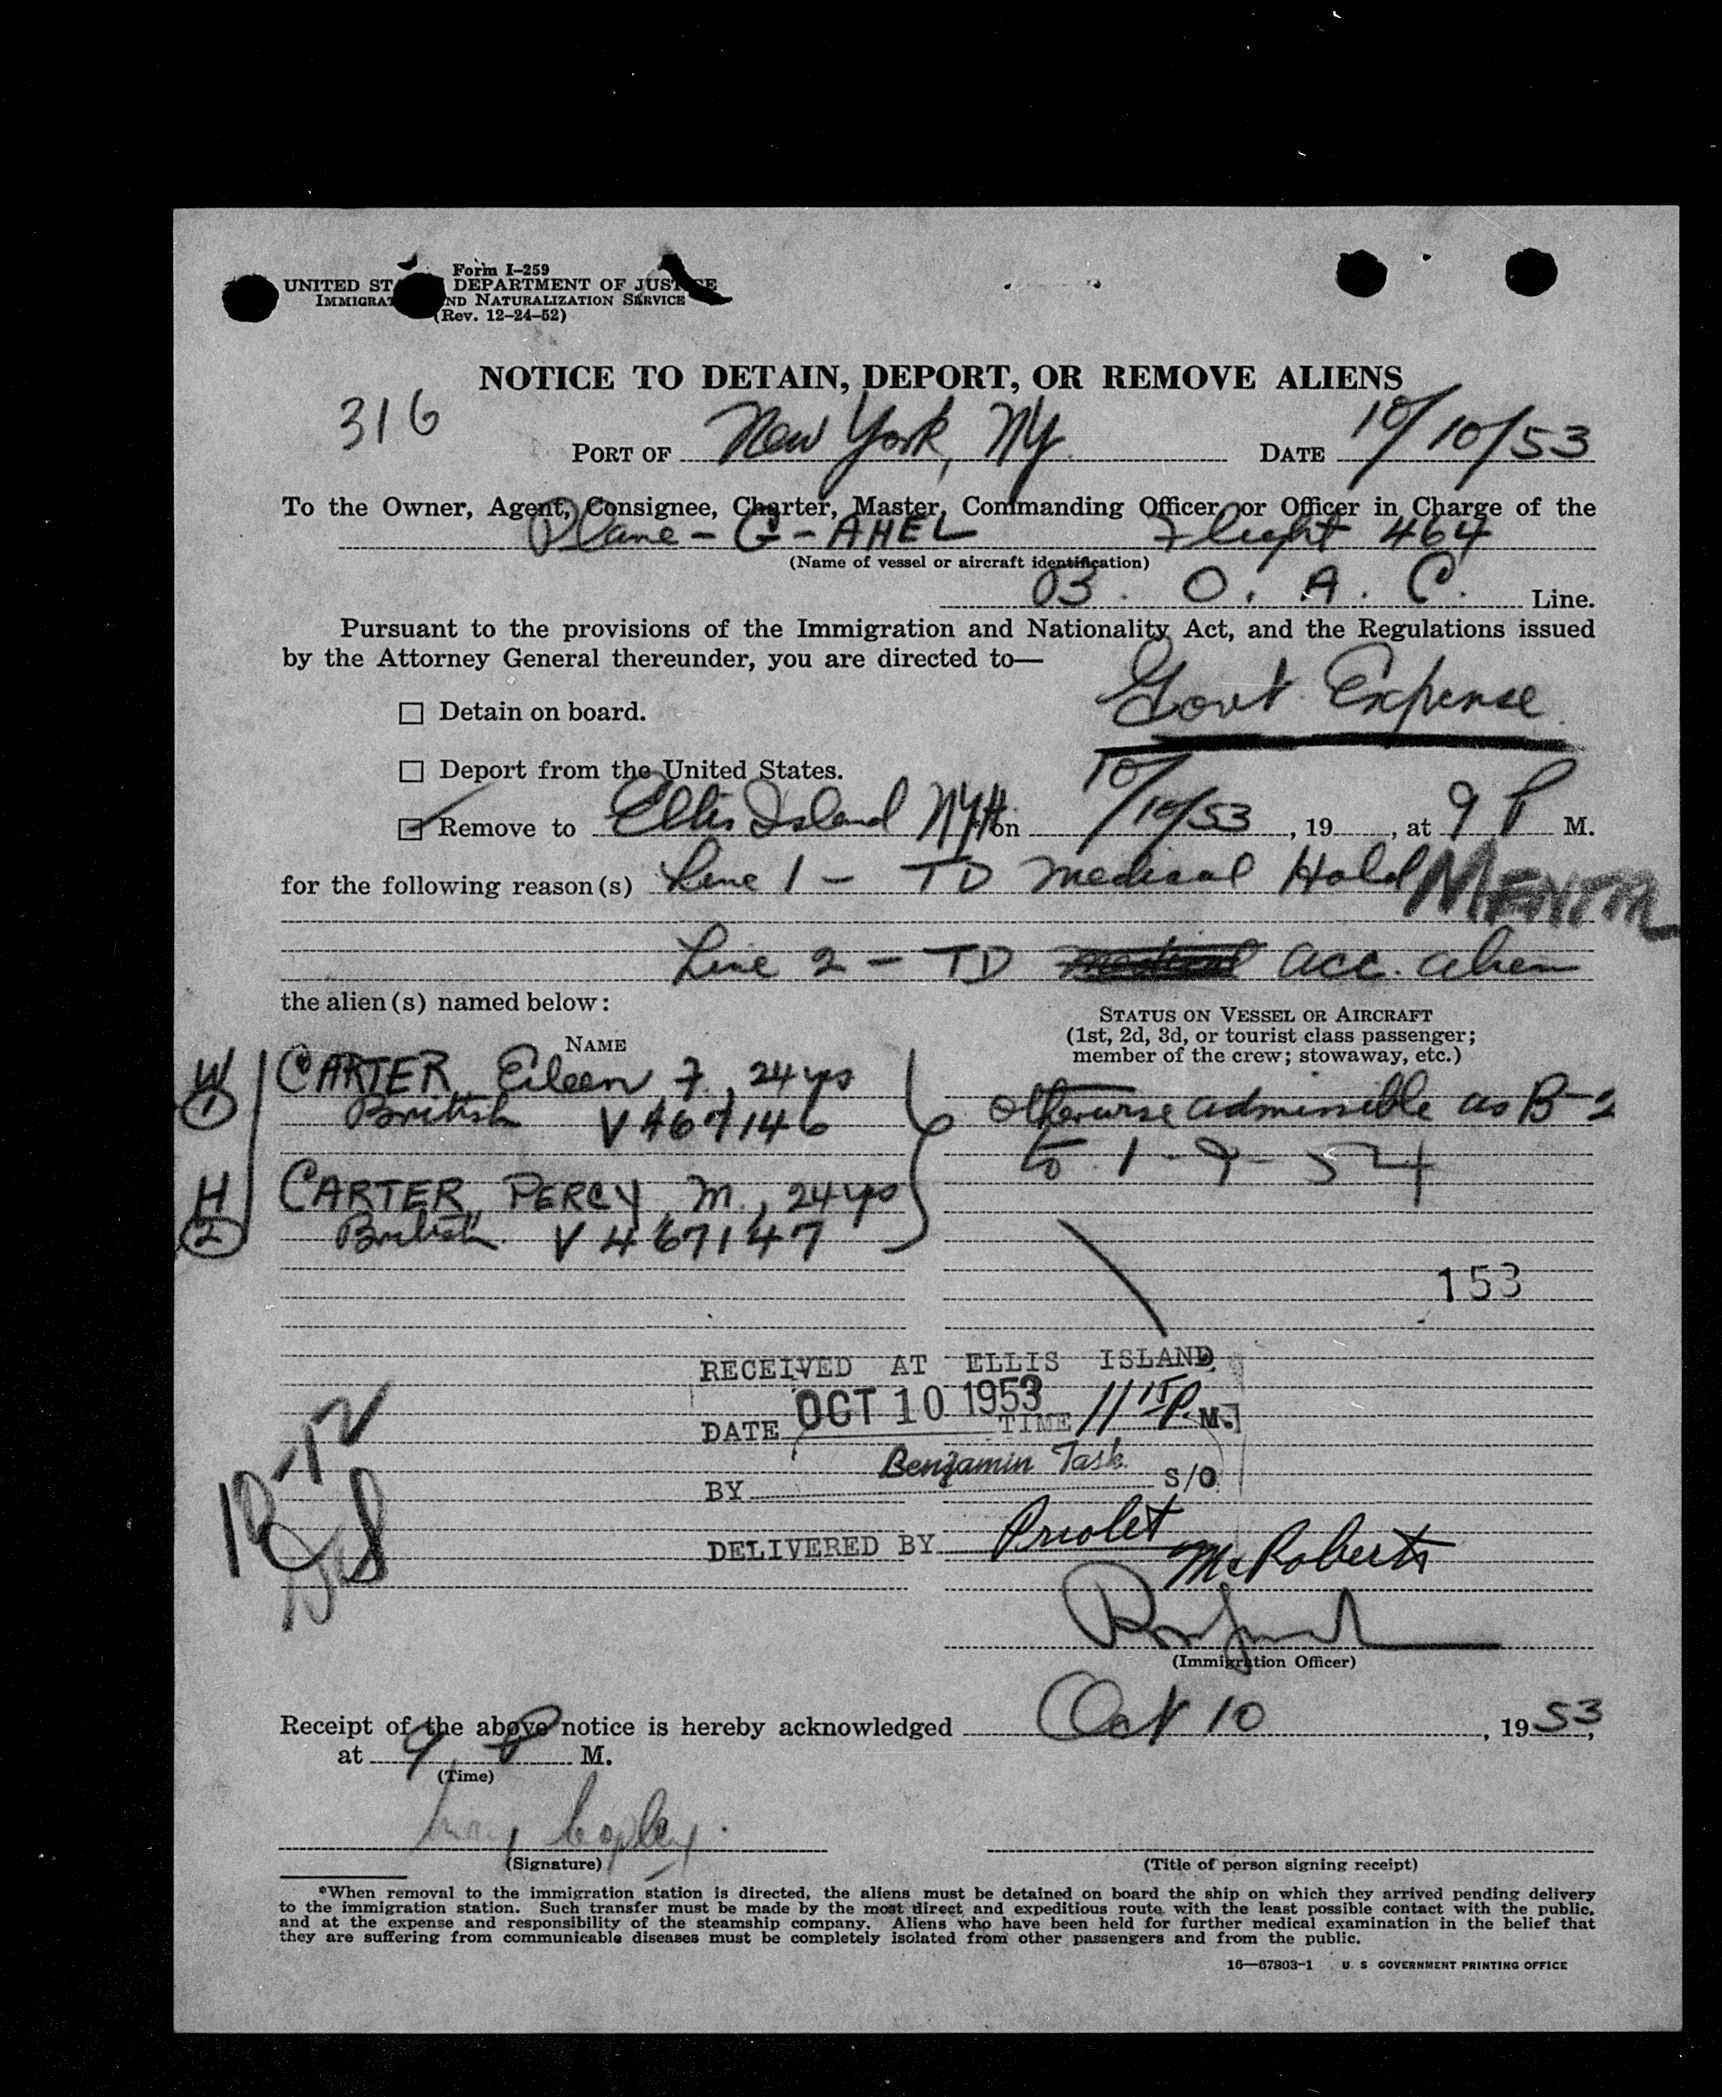 Form I-259
UNITED ST DEPARTMENT OF JUSTICE
IMMIGRAT ND NATURALIZATION SERVICE
(Rev. 12-24-52)
NOTICE TO DETAIN, DEPORT, OR REMOVE ALIENS
316
PORT OF New York, NY. DATE 10/10/53
To the Owner, Agent, Consignee, Charter, Master, Commanding Officer or Officer in Charge of the
Plane - G - AHEL Flight 464
(Name of vessel or aircraft identification)
B. O. A. C. Line.
Pursuant to the provisions of the Immigration and Nationality Act, and the Regulations issued
by the Attorney General thereunder, you are directed to—
Govt. Expense
☐ Detain on board.
☐ Deport from the United States.
☑ Remove to Ellis Island NYH on 10/10/53, 19 , at 9 P M.
for the following reason(s) Line 1 - TD Medical Hold
Line 2 - TD medical acc. alien
the alien(s) named below:
STATUS ON VESSEL OR AIRCRAFT
(1st, 2d, 3d, or tourist class passenger;
member of the crew; stowaway, etc.)
NAME
W CARTER, Eileen F., 24 yrs
1 British V 467146
otherwise admissible as B-2
to 1-9-54
H CARTER, PERCY M., 24 yrs
2 British. V 467147
153
RECEIVED AT ELLIS ISLAND
DATE OCT 10 1953 TIME 11 15 P. M.
BY Benjamin Task S/O
DELIVERED BY Priolet
McRoberts
10-12
(Immigration Officer)
Receipt of the above notice is hereby acknowledged Oct 10, 1953,
at 9 P M.
(Time)
Copley
(Signature)
(Title of person signing receipt)
*When removal to the immigration station is directed, the aliens must be detained on board the ship on which they arrived pending delivery
to the immigration station. Such transfer must be made by the most direct and expeditious route with the least possible contact with the public,
and at the expense and responsibility of the steamship company. Aliens who have been held for further medical examination in the belief that
they are suffering from communicable diseases must be completely isolated from other passengers and from the public.
16—67803-1 U. S GOVERNMENT PRINTING OFFICE